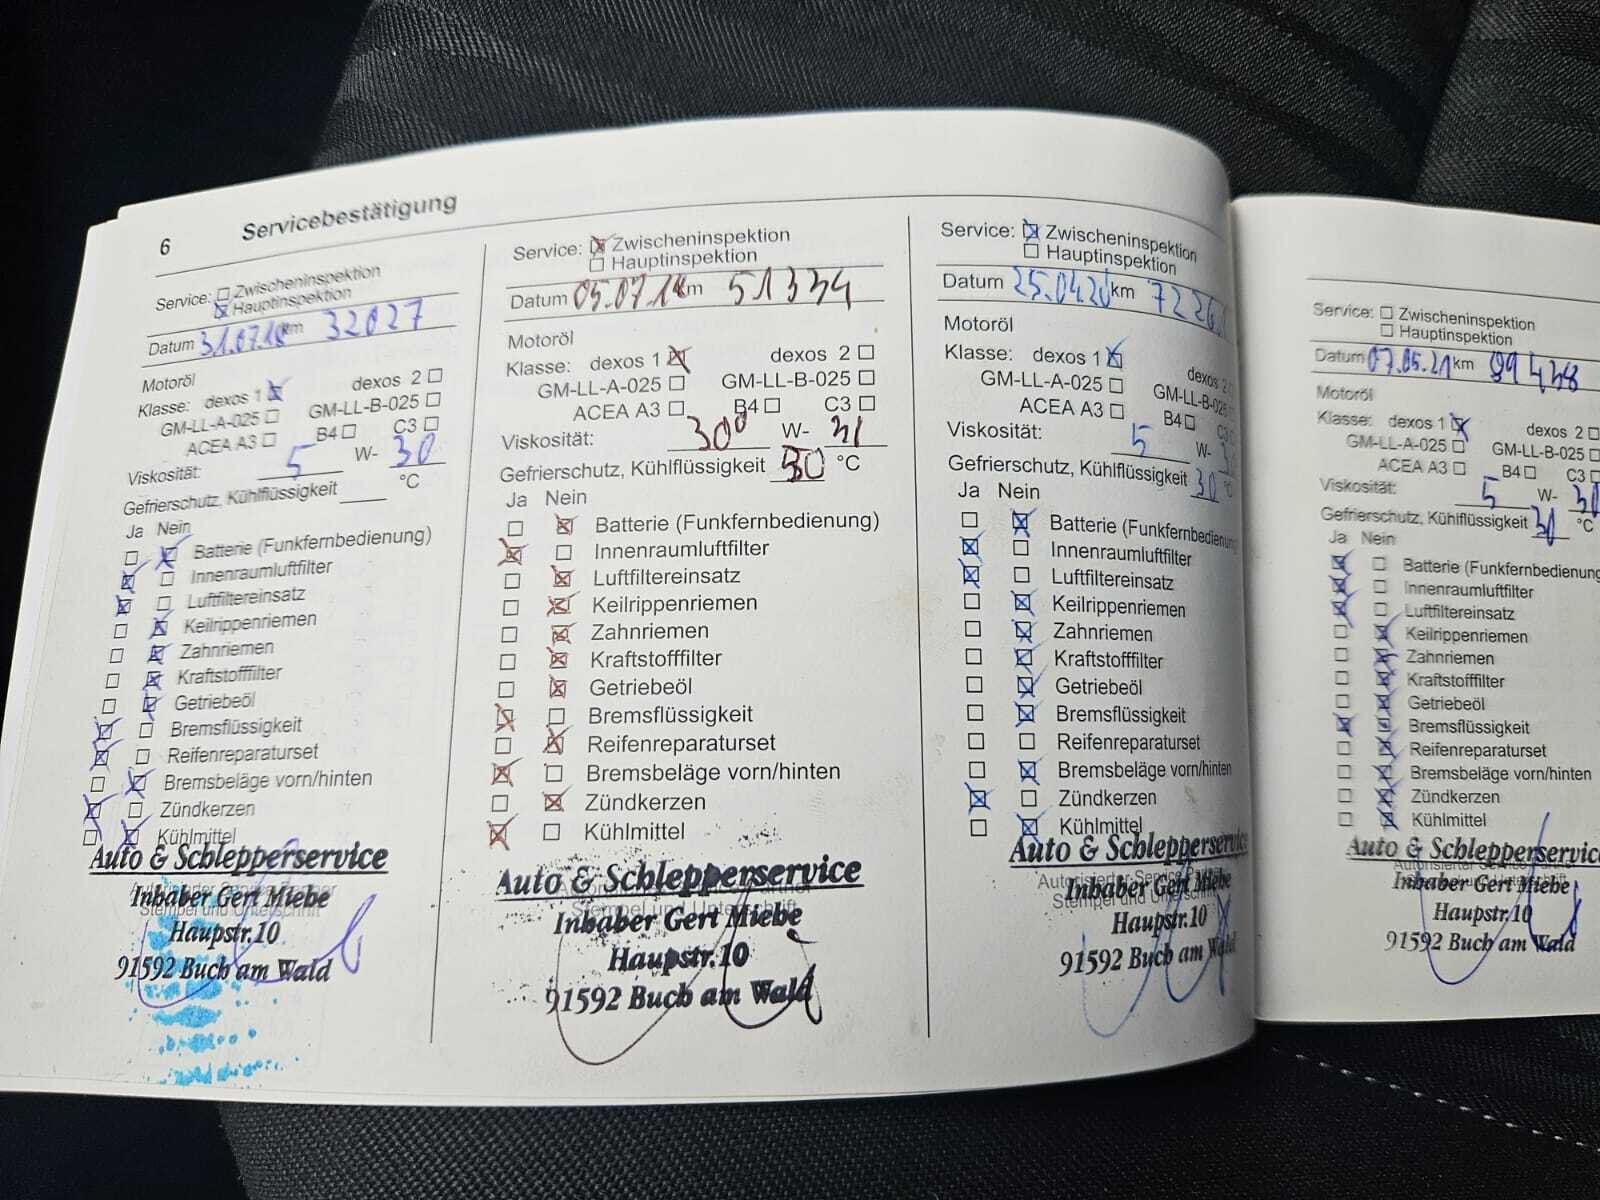 6 Servicebestätigung
Service: Zwischeninspektion
Hauptinspektion
Datum 31.07.18 km 32027
Motoröl
Klasse: dexos 1 dexos 2
GM-LL-A-025 GM-LL-B-025
ACEA A3 B4 C3
Viskosität: 5 W- 30
Gefrierschutz, Kühlflüssigkeit °C
Ja Nein
Batterie (Funkfernbedienung)
Innenraumluftfilter
Luftfiltereinsatz
Keilrippenriemen
Zahnriemen
Kraftstofffilter
Getriebeöl
Bremsflüssigkeit
Reifenreparaturset
Bremsbeläge vorn/hinten
Zündkerzen
Kühlmittel
Auto & Schlepperservice
Autorisierter Service Partner
Inhaber Gert Miebe
Stempel und Unterschrift
Haupstr.10
91592 Buch am Wald
Service: Zwischeninspektion
Hauptinspektion
Datum 05.07.1 km 51334
Motoröl
Klasse: dexos 1 dexos 2
GM-LL-A-025 GM-LL-B-025
ACEA A3 B4 C3
Viskosität: W-
Gefrierschutz, Kühlflüssigkeit 30 °C
Ja Nein
Batterie (Funkfernbedienung)
Innenraumluftfilter
Luftfiltereinsatz
Keilrippenriemen
Zahnriemen
Kraftstofffilter
Getriebeöl
Bremsflüssigkeit
Reifenreparaturset
Bremsbeläge vorn/hinten
Zündkerzen
Kühlmittel
Auto & Schlepperservice
Stempel und Unterschrift
Inhaber Gert Miebe
Haupstr.10
91592 Buch am Wald
Service: Zwischeninspektion
Hauptinspektion
Datum 25.04.20 km 7226
Motoröl
Klasse: dexos 1 dexos 2
GM-LL-A-025 GM-LL-B-025
ACEA A3 B4 C3
Viskosität: 5 W- 3
Gefrierschutz, Kühlflüssigkeit 30 °C
Ja Nein
Batterie (Funkfernbedienung
Innenraumluftfilter
Luftfiltereinsatz
Keilrippenriemen
Zahnriemen
Kraftstofffilter
Getriebeöl
Bremsflüssigkeit
Reifenreparaturset
Bremsbeläge vorn/hinten
Zündkerzen
Kühlmittel
Auto & Schlepperservice
Autorisierter Service
Inhaber Gert Miebe
Stempel und Unterschrift
Haupstr.10
91592 Buch am Wald
Service: Zwischeninspektion
Hauptinspektion
Datum 07.05.21 km 99438
Motoröl
Klasse: dexos 1 dexos 2
GM-LL-A-025 GM-LL-B-025
ACEA A3 B4 C3
Viskosität: 5 W- 30
Gefrierschutz, Kühlflüssigkeit °C
Ja Nein
Batterie (Funkfernbedienung
Innenraumluftfilter
Luftfiltereinsatz
Keilrippenriemen
Zahnriemen
Kraftstofffilter
Getriebeöl
Bremsflüssigkeit
Reifenreparaturset
Bremsbeläge vorn/hinten
Zündkerzen
Kühlmittel
Auto & Schlepperservice
Autorisierter Service
Inhaber Gert Miebe
Haupstr.10
91592 Buch am Wald